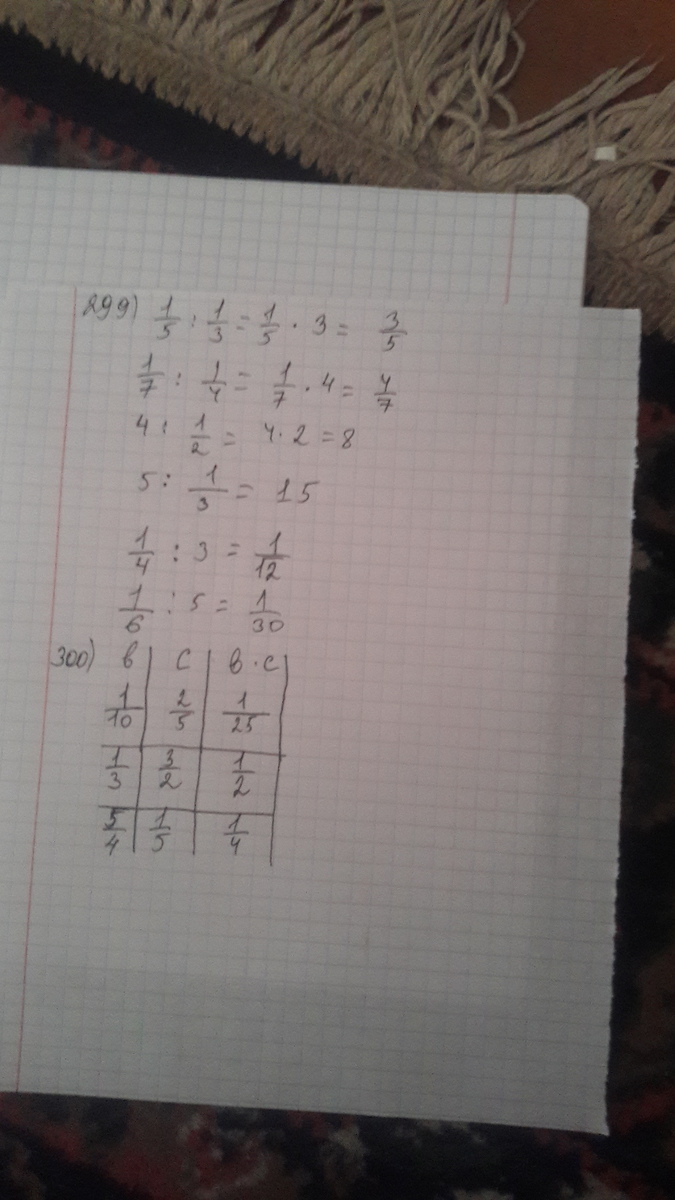 299) 1/5 : 1/3 = 1/5 · 3 = 3/5
1/7 : 1/4 = 1/7 · 4 = 4/7
4 : 1/2 = 4 · 2 = 8
5 : 1/3 = 15
1/4 : 3 = 1/12
1/6 : 5 = 1/30
300) в | с | в · с
1/10 | 2/5 | 1/25
1/3 | 3/2 | 1/2
5/4 | 1/5 | 1/4